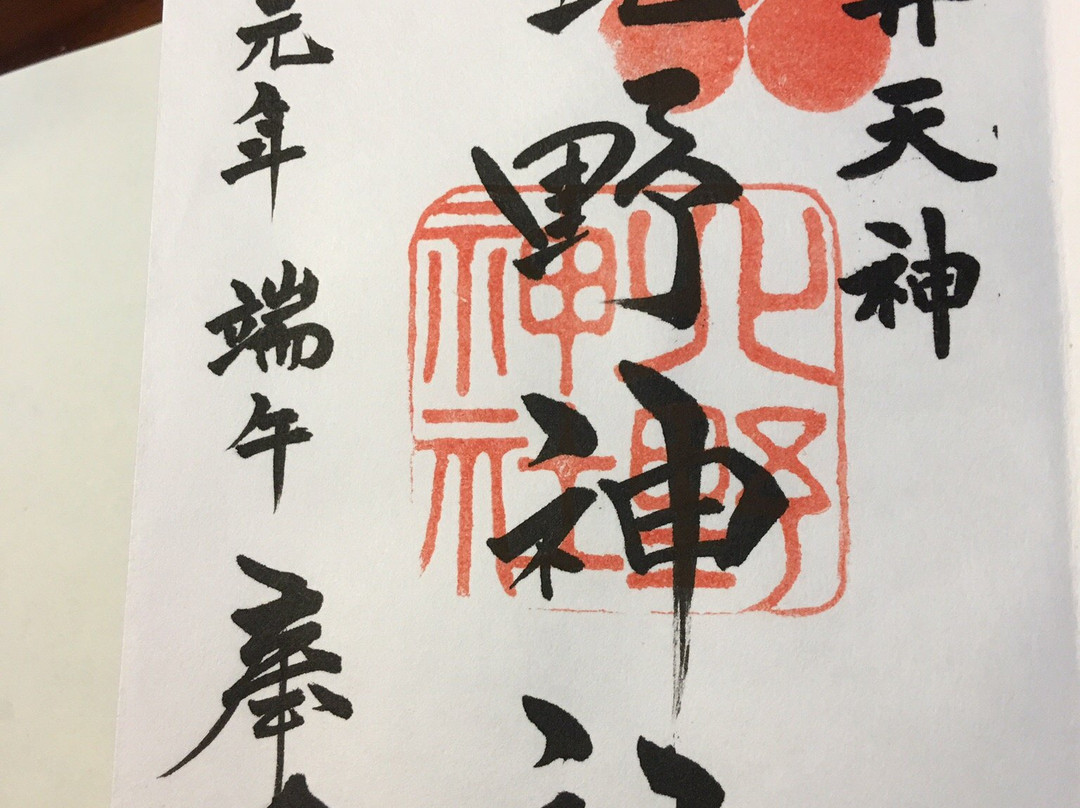 天神
野神
北野
神社
元年 端午 奉